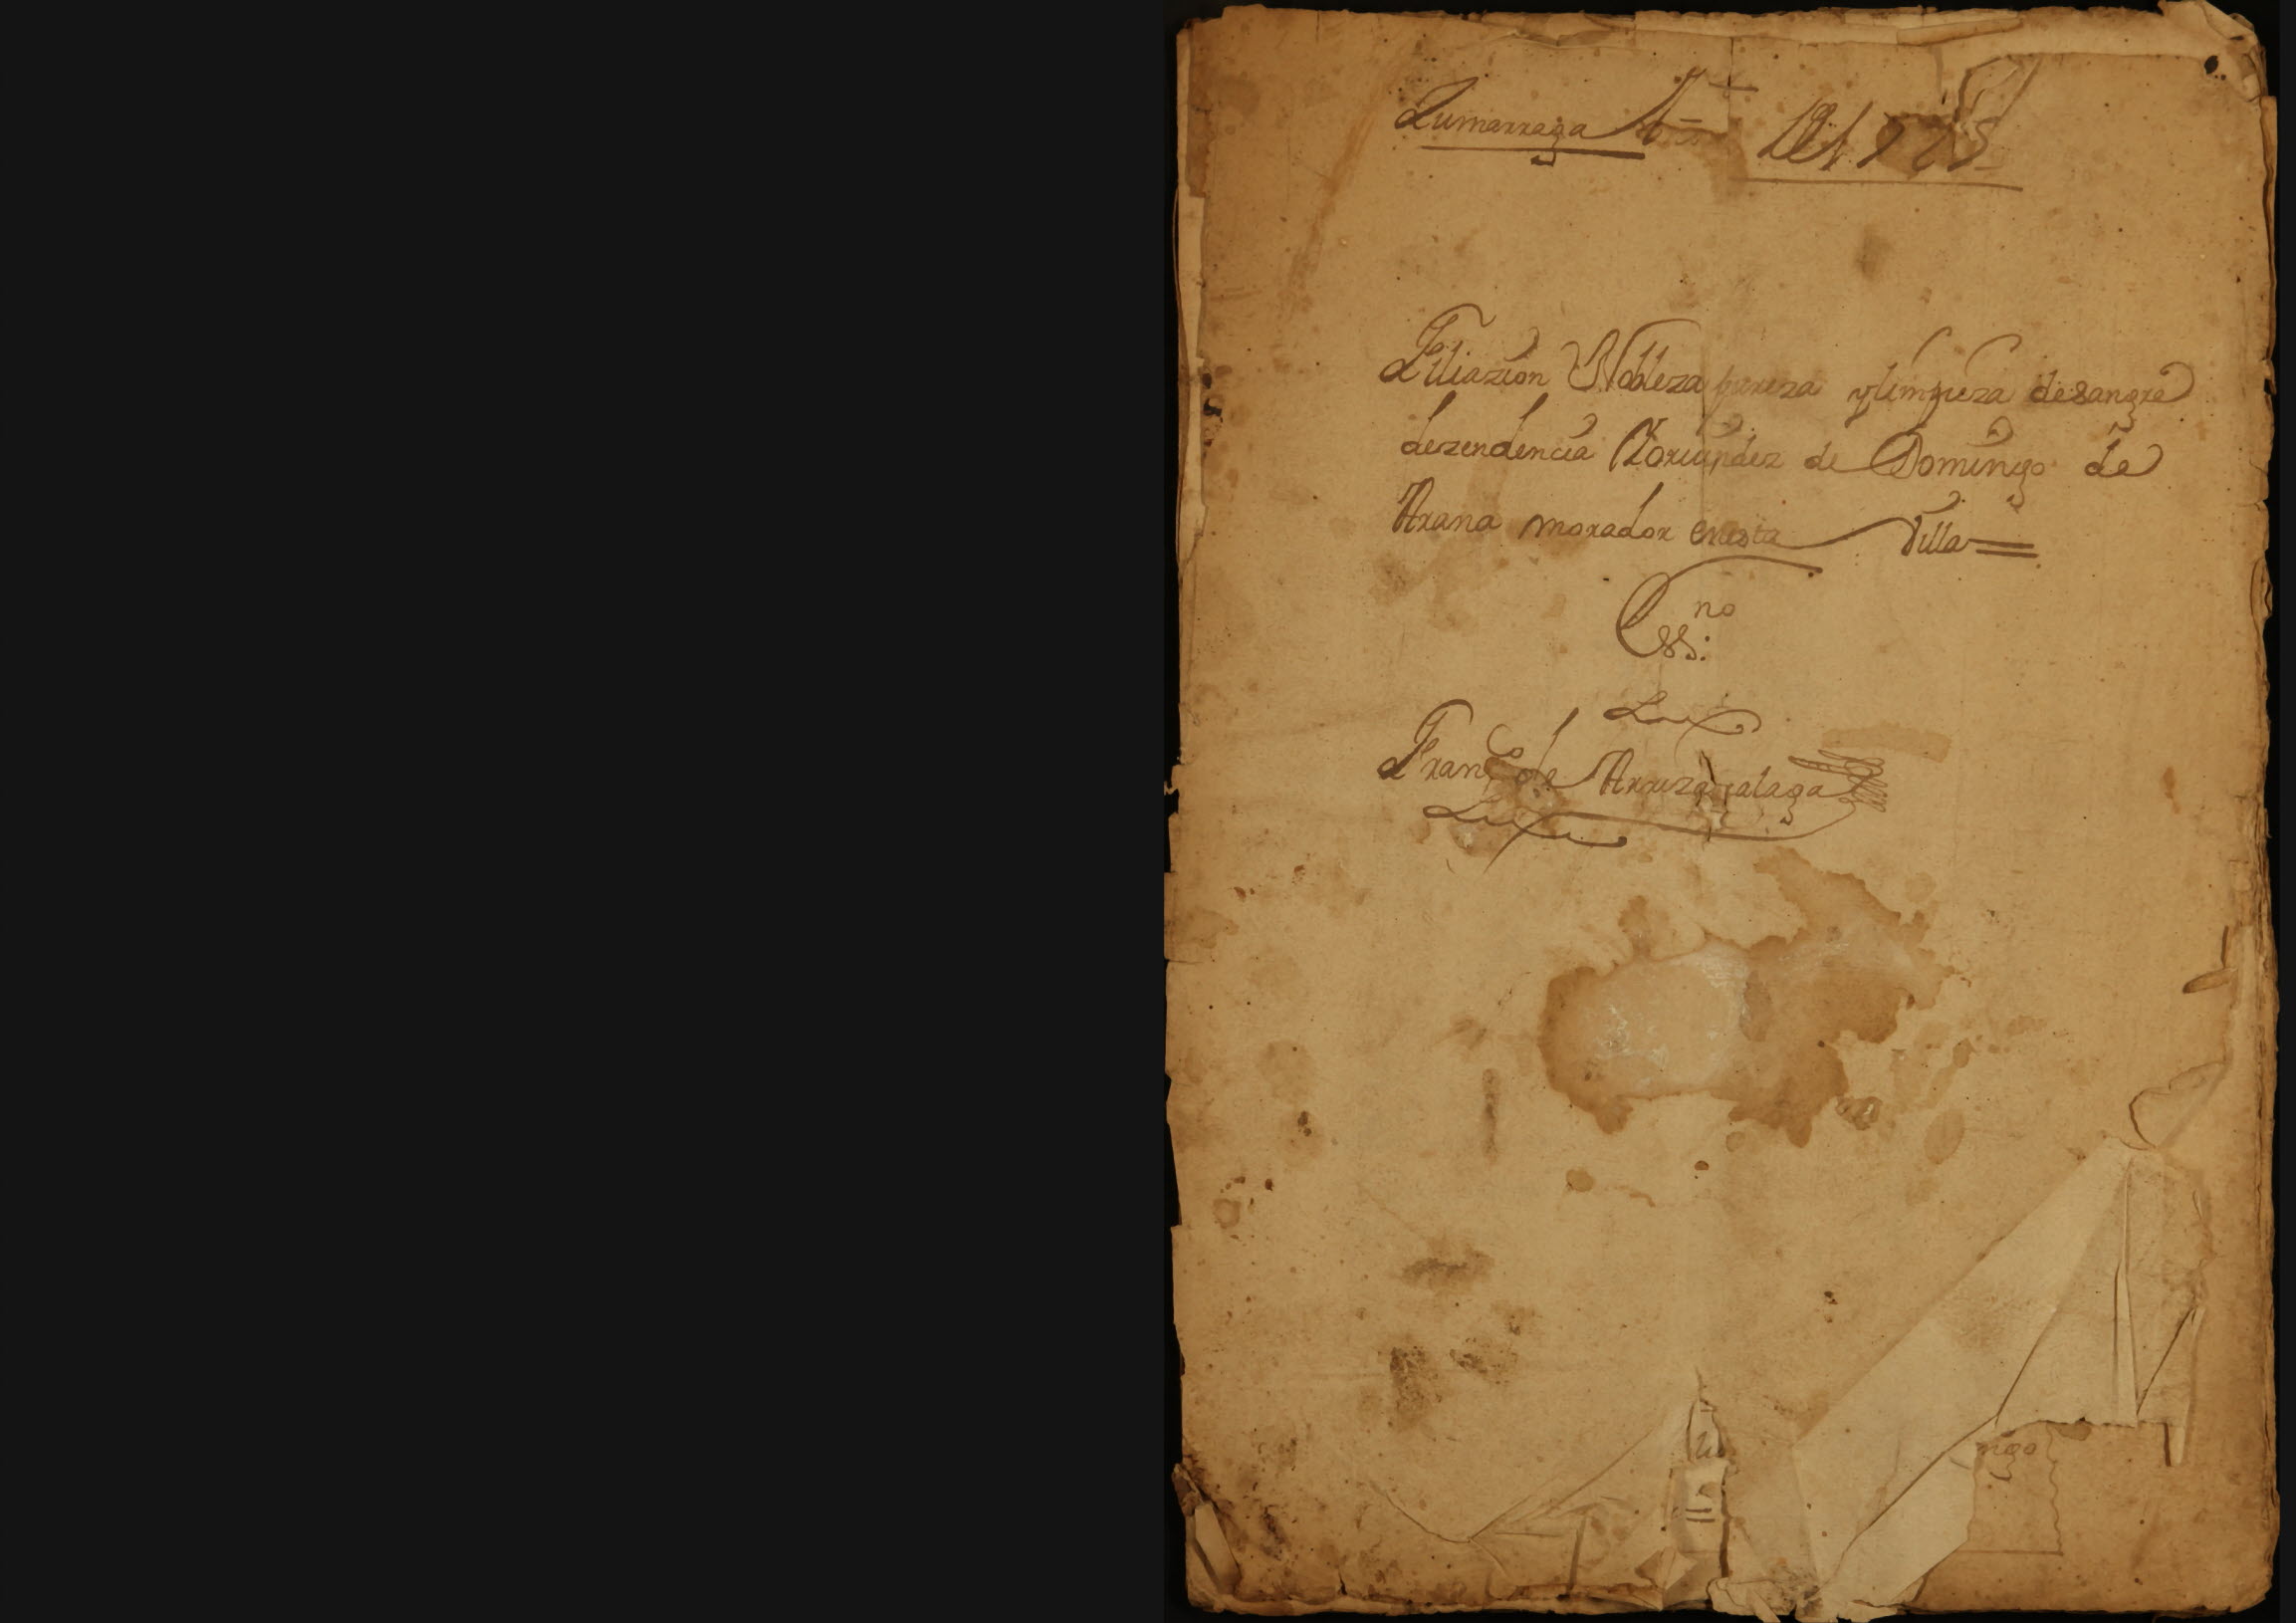 Zumarraga
Filiazion Nobleza pureza y limpieza de sangre
dezendencia de Domingo de
Arana morador enesta Villa=
Ess.no
Franco de Arrizabalaga
ngo